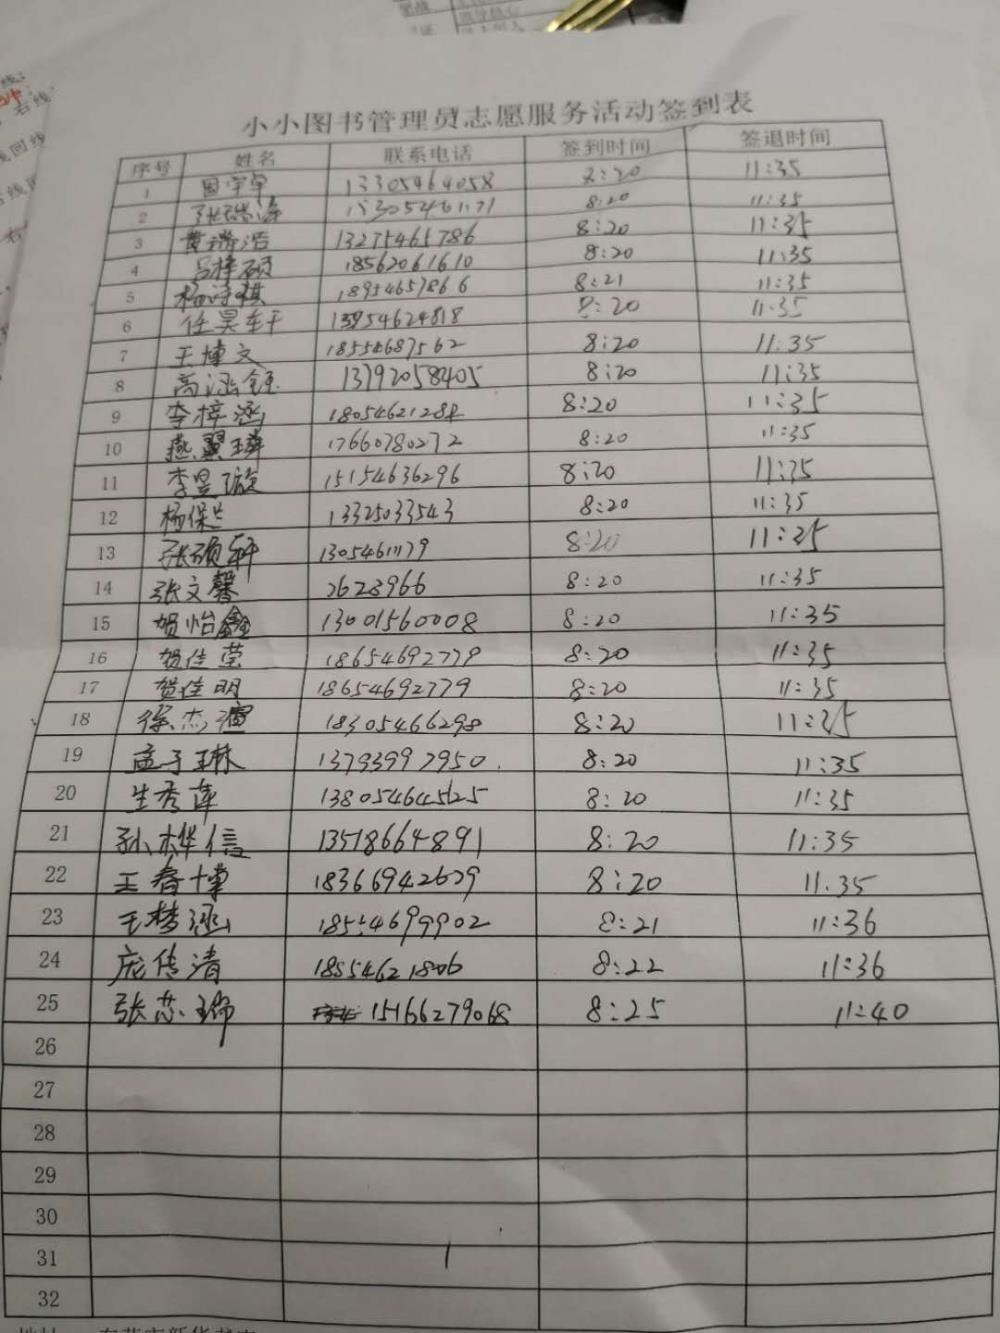 小小图书管理员志愿服务活动签到表
序号 姓名 联系电话 签到时间 签退时间
1 13305464058 8:20 11:35
2 张瑞涛 8:20 11:35
3 黄瑞浩 13275465786 8:20 11:35
4 吕梓硕 18562061610 8:20 11:35
5 杨诗祺 18954657866 8:21 11:35
6 任昊轩 13954624818 8:20 11:35
7 王博文 18554687562 8:20 11:35
8 高涵钰 13792058405 8:20 11:35
9 李梓涵 8:20 11:35
10 燕翼璘 17660780272 8:20 11:35
11 李昱璇 15154636296 8:20 11:35
12 13325033543 8:20 11:35
13 张硕轩 8:20 11:35
14 张文馨 2623966 8:20 11:35
15 贺怡鑫 13001560008 8:20 11:35
16 贺佳莹 18654692779 8:20 11:35
17 贺佳明 18654692779 8:20 11:35
18 徐杰 18305466298 8:20 11:35
19 孟子琳 13793997950 8:20 11:35
20 生秀萍 13805464525 8:20 11:35
21 孙桦信 13518664891 8:20 11:35
22 王春博 18366942679 8:20 11.35
23 王梦涵 8:21 11:36
24 庞传清 18554621806 8:22 11:36
25 张芯瑜 15166279068 8:25 11:40
26
27
28
29
30
31
32